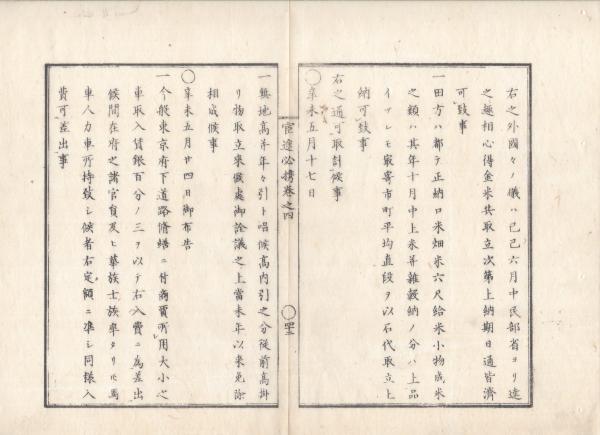 右之外國々ノ儀ハ己巳六月中民部省ヨリ達
之趣相心得金米共取立次第上納期日通皆濟
可致事
一田方ハ都テ正納口米畑米六尺給米小物成米
之類ハ其年十月中上米并雜穀納ノ分ハ上品
イツレモ最寄市町平均直段ヲ以石代取立上
納可致事
右之通可取計候事
◯辛未五月十七日
官途必携巻之四
一無地高并年々引ト唱候高内引之分従前高掛
リ物取立來候處御詮議之上當未年以來免除
相成候事
◯辛未五月廿四日御布告
一今般東京府下道路修繕ニ付商賣所用大小之
車取入賃銀百分ノ三ヲ以テ右入費ニ為差出
候間在府之諸官員及ヒ華族士族卒タリトモ馬
車人力車所持致シ候者右定額ニ準シ同様入
費可差出事